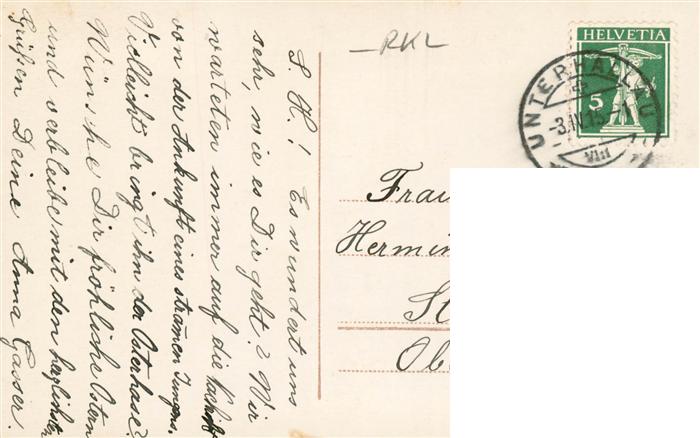 L. H.! Es wundert uns
sehr, wie es Dir geht? Wir
warteten immer auf die Nachricht
von der Ankunft eines strammen Jungens.
Vielleicht bringt ihn der Osterhase?
Wünsche Dir fröhliche Ostern
und verbleibe mit den herzlichsten
Grüßen Deine Anna Gasser.
RKL
HELVETIA
5
UNTERHALLAU
-3.IV.15.-1
VIII
Frau
Hermin
St
Ob